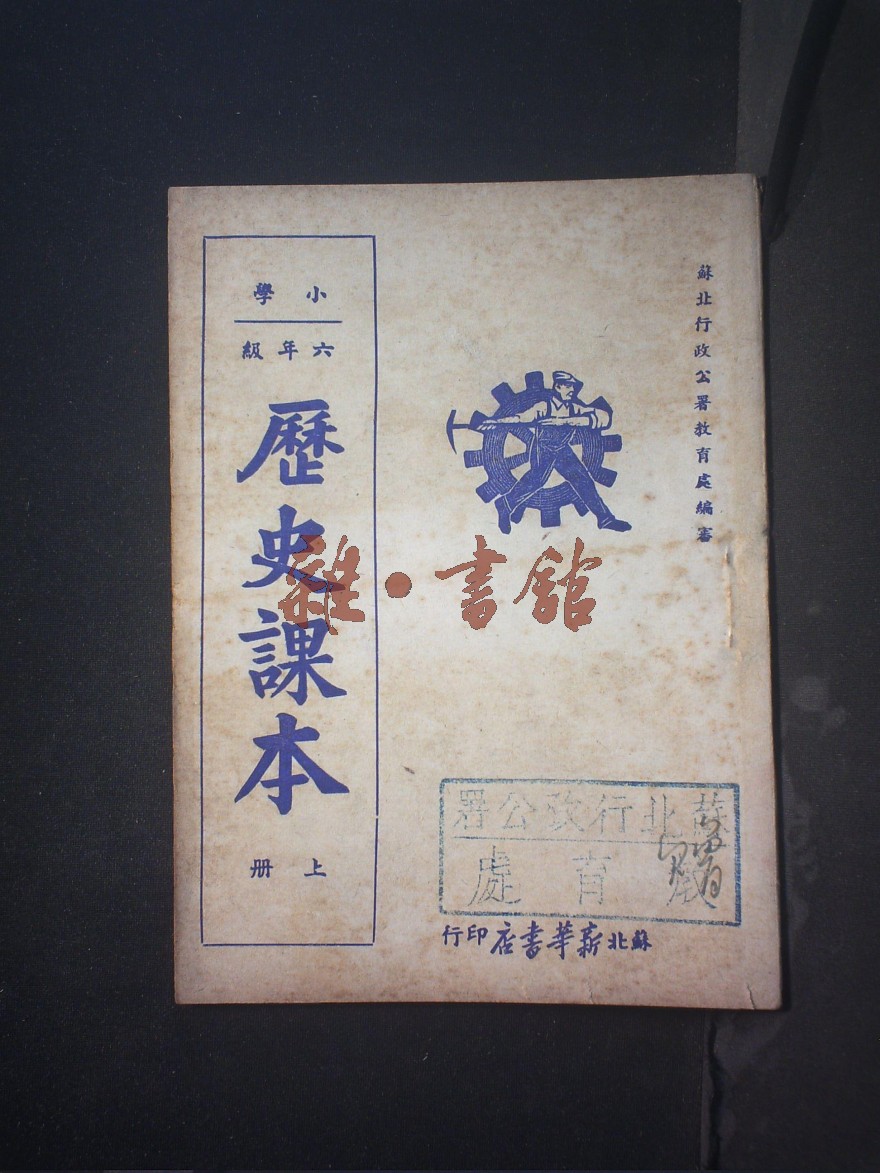 蘇北行政公署教育處編審
小學
六年級
歷史課本
上册
雜·書館
蘇北行政公署
教育處
蘇北新華書店印行